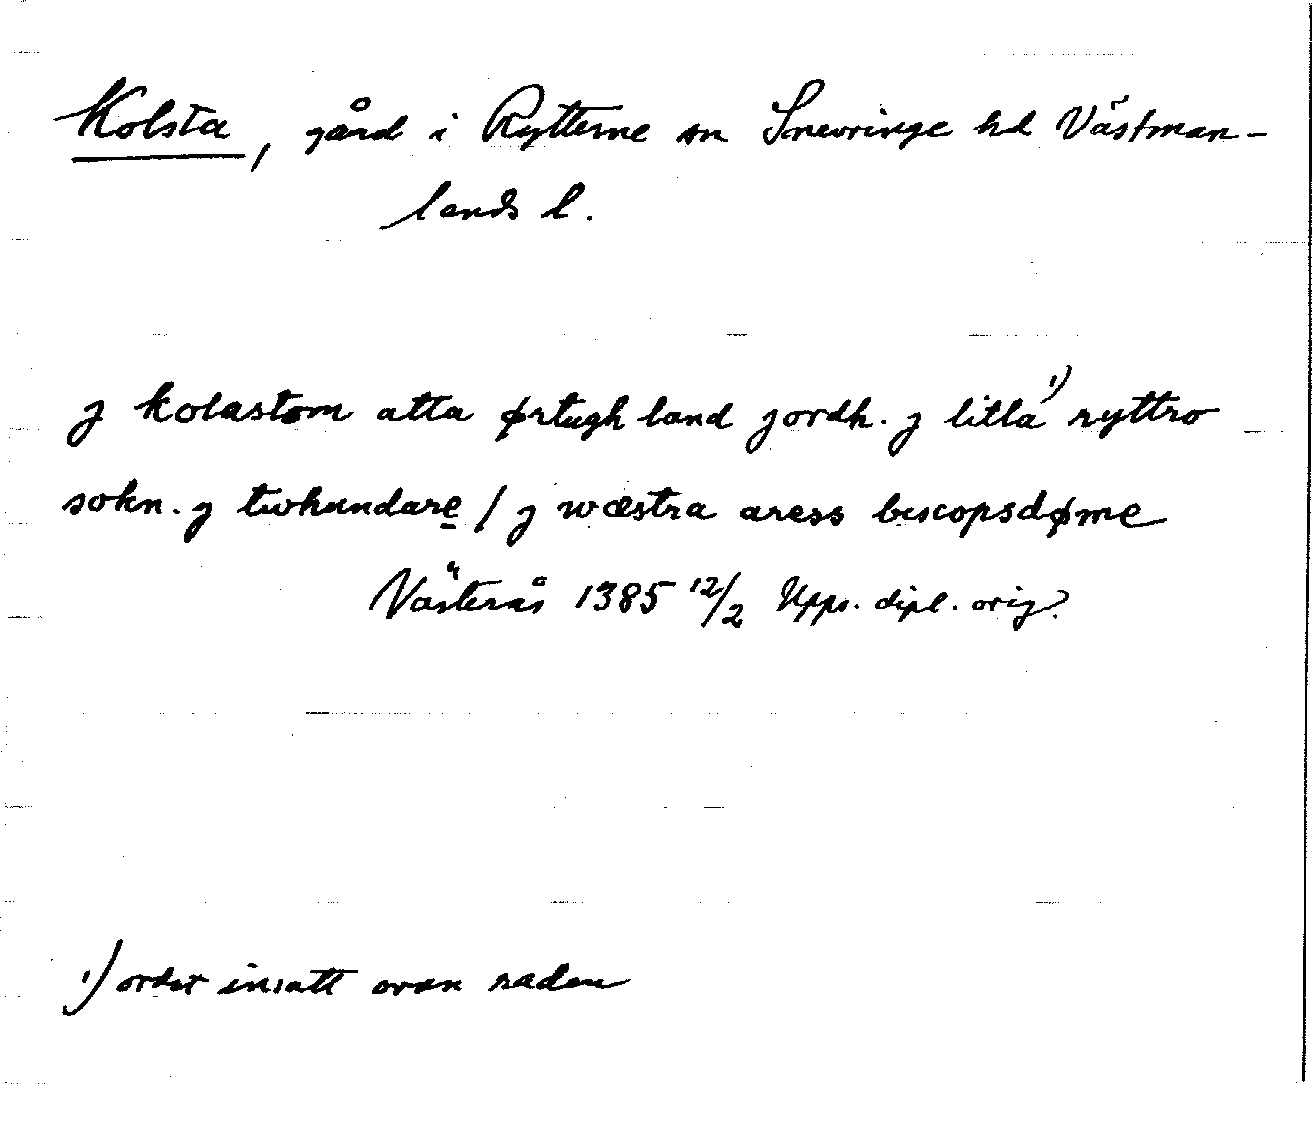 Kolsta, gård i Rytterne sn Snevringe hd Västman-
lands l.
j kolastom atta ørtugh land jordh. j litla¹⁾ ryttro
sokn. j twhundare / j wæstra aress biscopsdøme
Västerås 1385 12/2 Upps. dipl. orig.
¹⁾ ordet insatt ovan raden